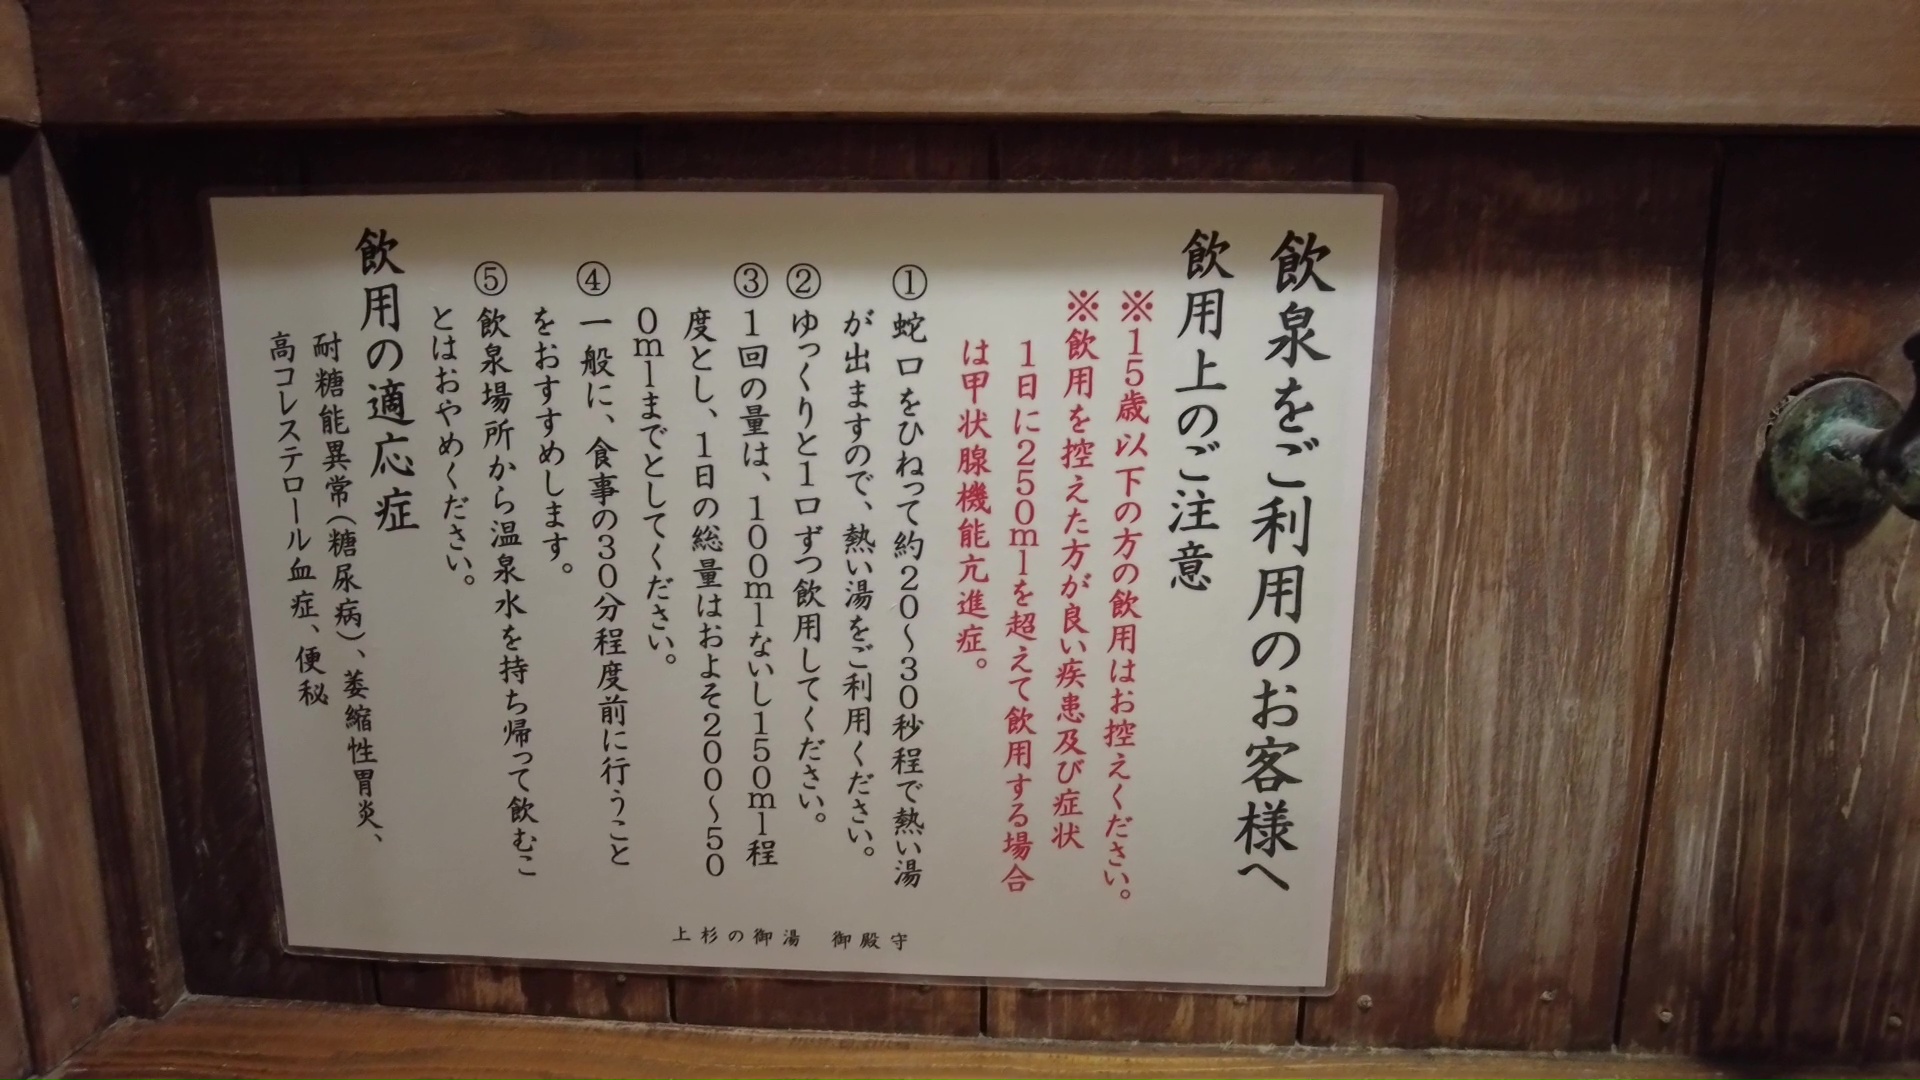 飲泉をご利用のお客様へ
飲用上のご注意
※１５歳以下の方の飲用はお控えください。
※飲用を控えた方が良い疾患及び症状
１日に２５０ｍｌを超えて飲用する場合
は甲状腺機能亢進症。
①蛇口をひねって約２０～３０秒程で熱い湯
が出ますので、熱い湯をご利用ください。
②ゆっくりと１口ずつ飲用してください。
③１回の量は、１００ｍｌないし１５０ｍｌ程
度とし、１日の総量はおよそ２００～５０
０ｍｌまでとしてください。
④一般に、食事の３０分程度前に行うこと
をおすすめします。
⑤飲泉場所から温泉水を持ち帰って飲むこ
とはおやめください。
飲用の適応症
耐糖能異常（糖尿病）、萎縮性胃炎、
高コレステロール血症、便秘
上杉の御湯　御殿守